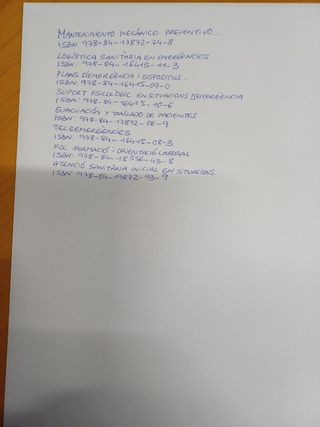 MANTENIMIENTO MECÁNICO PREVENTIVO...
ISBN: 978-84-17872-74-8
LOGÍSTICA SANITARIA EN EMERGÈNCIES
ISBN: 978-84-16415-11-3
PLANS D'EMERGÈNCIA I DISPOSITIUS...
ISBN: 978-84-16415-09-0
SUPORT PSICOLÒGIC EN SITUACIONS D'EMERGÈNCIA
ISBN: 978-84-16415-10-6
EVACUACIÓN Y TRASLADO DE PACIENTES
ISBN: 978-84-17872-06-9
TELEEMERGÈNCIES
ISBN: 978-84-16415-08-3
FOL FORMACIÓ I ORIENTACIÓ LABORAL
ISBN: 978-84-18356-43-8
ATENCIÓ SANITÀRIA INICIAL EN SITUACIONS...
ISBN: 978-84-17872-93-9